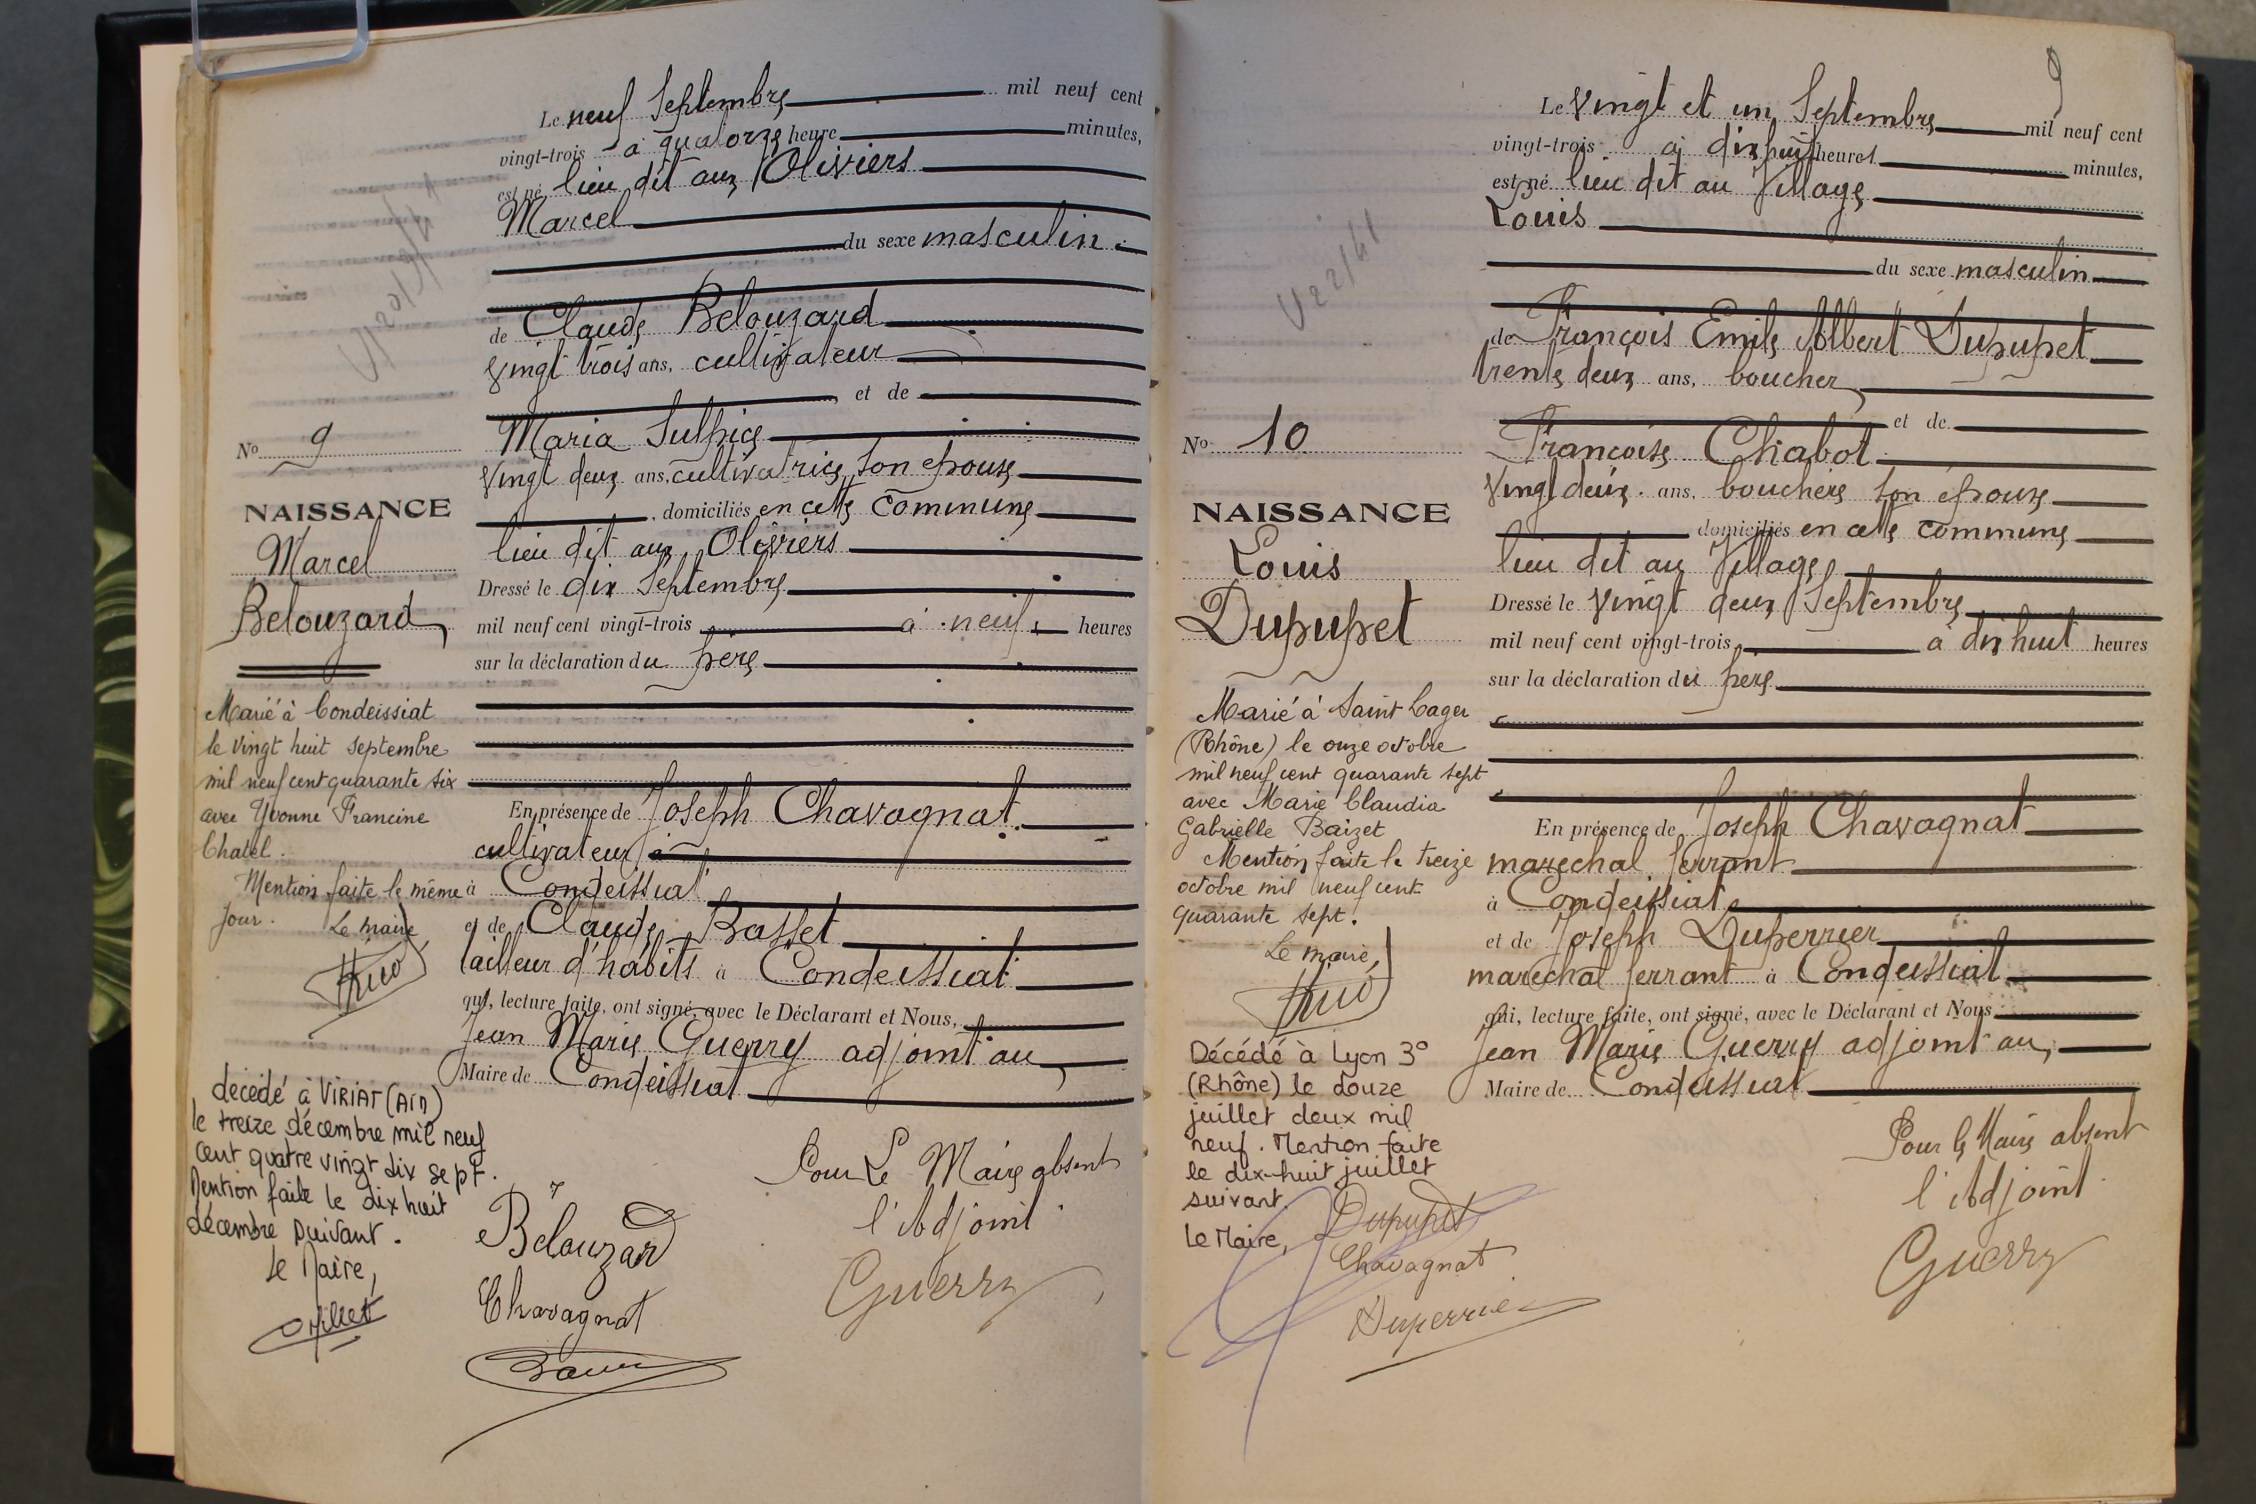 Le neuf Septembre mil neuf cent
vingt-trois à quatorze heure minutes,
est né lieu dit aux Oliviers
Marcel
du sexe masculin.
de Claude Belouzard
vingt trois ans, cultivateur
et de
Maria Sulpice
vingt deux ans, cultivatrice, son épouse
, domiciliés en cette commune
lieu dit aux Oliviers
Dressé le dix Septembre
mil neuf cent vingt-trois à neuf heures
sur la déclaration du père
En présence de Joseph Chavagnat
cultivateur
à Condeissiat
et de Claude Basset
tailleur d'habits à Condeissiat
qui, lecture faite, ont signé, avec le Déclarant et Nous,
Jean Marie Guerry adjoint au
Maire de Condeissiat
Pour Le Maire absent
l'Adjoint
Guerry
Belouzard
Chavagnat
No 9
NAISSANCE
Marcel
Belouzard
Marié à Condeissiat
le vingt huit septembre
mil neuf cent quarante six
avec Yvonne Francine
Chatel.
Mention faite le même
jour. Le maire,
décédé à VIRIAT (Ain)
le treize décembre mil neuf
cent quatre vingt dix sept.
Mention faite le dix huit
décembre suivant.
Le Maire,
9
Le vingt et un Septembre mil neuf cent
vingt-trois à dix huit heures minutes,
est né lieu dit au Village
Louis
du sexe masculin
de François Emile Albert Dupupet
trente deux ans, boucher
et de
Françoise Chabot
vingt deux ans, bouchère son épouse
domiciliés en cette commune
lieu dit au Village
Dressé le vingt deux Septembre
mil neuf cent vingt-trois à dix huit heures
sur la déclaration du père
En présence de Joseph Chavagnat
marechal ferrant
à Condeissiat
et de Joseph Duperrier
marechal ferrant à Condeissiat
qui, lecture faite, ont signé, avec le Déclarant et Nous
Jean Marie Guerry adjoint au
Maire de Condeissiat
Pour le Maire absent
l'Adjoint
Guerry
Dupupet
Chavagnat
Duperrier
V22/41
No 10
NAISSANCE
Louis
Dupupet
Marié à Saint Lager
(Rhône) le onze octobre
mil neuf cent quarante sept
avec Marie Claudia
Gabrielle Baizet
Mention faite le treize
octobre mil neuf cent
quarante sept.
Le maire,
Décédé à Lyon 3°
(Rhône) le douze
juillet deux mil
neuf. Mention faite
le dix-huit juillet
suivant.
Le Maire,